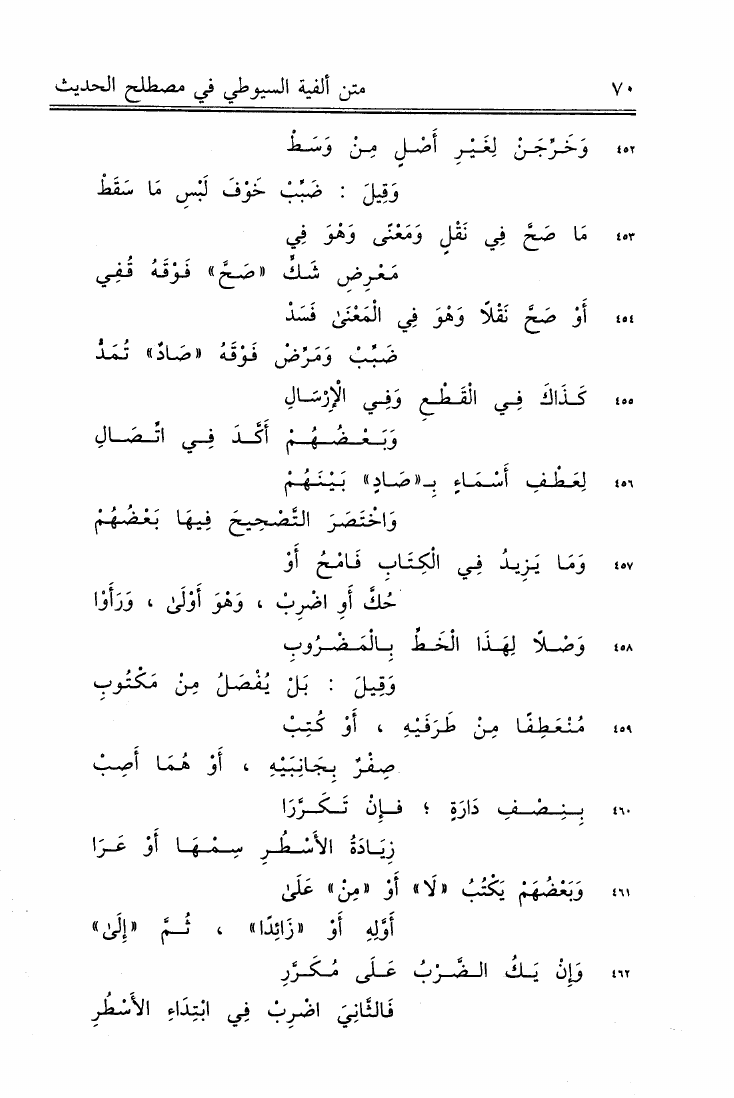 ٧٠ متن ألفية السيوطي في مصطلح الحديث
٤٥٢ وَخَرِّجَنْ لِغَيْرِ أَصْلٍ مِنْ وَسَطْ
وَقِيلَ : ضَبِّبْ خَوْفَ لَبْسِ مَا سَقَطْ
٤٥٣ مَا صَحَّ فِي نَقْلٍ وَمَعْنًى وَهْوَ فِي
مَعْرِضِ شَكٍّ «صَحَّ» فَوْقَهُ قُفِي
٤٥٤ أَوْ صَحَّ نَقْلًا وَهْوَ فِي الْمَعْنَىٰ فَسَدْ
ضَبِّبْ وَمَرِّضْ فَوْقَهُ «صَادٌ» تُمَدّْ
٤٥٥ كَذَاكَ فِي الْقَطْعِ وَفِي الْإِرْسَالِ
وَبَعْضُهُمْ أَكَّدَ فِي اتِّصَالِ
٤٥٦ لِعَطْفِ أَسْمَاءٍ بِـ«صَادٍ» بَيْنَهُمْ
وَاخْتَصَرَ التَّصْحِيحَ فِيهَا بَعْضُهُمْ
٤٥٧ وَمَا يَزِيدُ فِي الْكِتَابِ فَامْحُ أَوْ
حُكَّ أَوِ اضْرِبْ ، وَهْوَ أَوْلَىٰ ، وَرَأَوْا
٤٥٨ وَصْلًا لِهَذَا الْخَطِّ بِالْمَضْرُوبِ
وَقِيلَ : بَلْ يُفْصَلُ مِنْ مَكْتُوبِ
٤٥٩ مُنْعَطِفًا مِنْ طَرَفَيْهِ ، أَوْ كُتِبْ
صِفْرٌ بِجَانِبَيْهِ ، أَوْ هُمَا أَصِبْ
٤٦٠ بِنِصْفِ دَارَةٍ ؛ فَإِنْ تَكَرَّرَا
زِيَادَةُ الأَسْطُرِ سِمْهَا أَوْ عَرَا
٤٦١ وَبَعْضُهُمْ يَكْتُبُ «لَا» أَوْ «مِنْ» عَلَىٰ
أَوَّلِهِ أَوْ «زَائِدًا» ، ثُمَّ «إِلَىٰ»
٤٦٢ وَإِنْ يَكُ الضَّرْبُ عَلَى مُكَرَّرِ
فَالثَّانِيَ اضْرِبْ فِي ابْتِدَاءِ الأَسْطُرِ